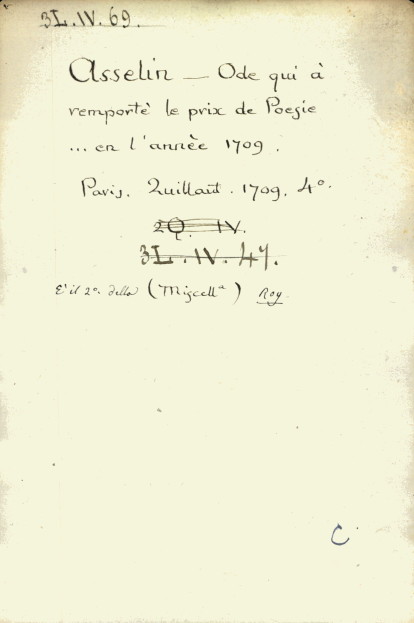 3L.IV.69.
Asselin — Ode qui à
remporté le prix de Poesie
... en l'année 1709.
Paris. Quillaut. 1709. 4º.
2Q. IV.
3L.IV.47.
E' il 2º. della (Miscellª) Roy.
C